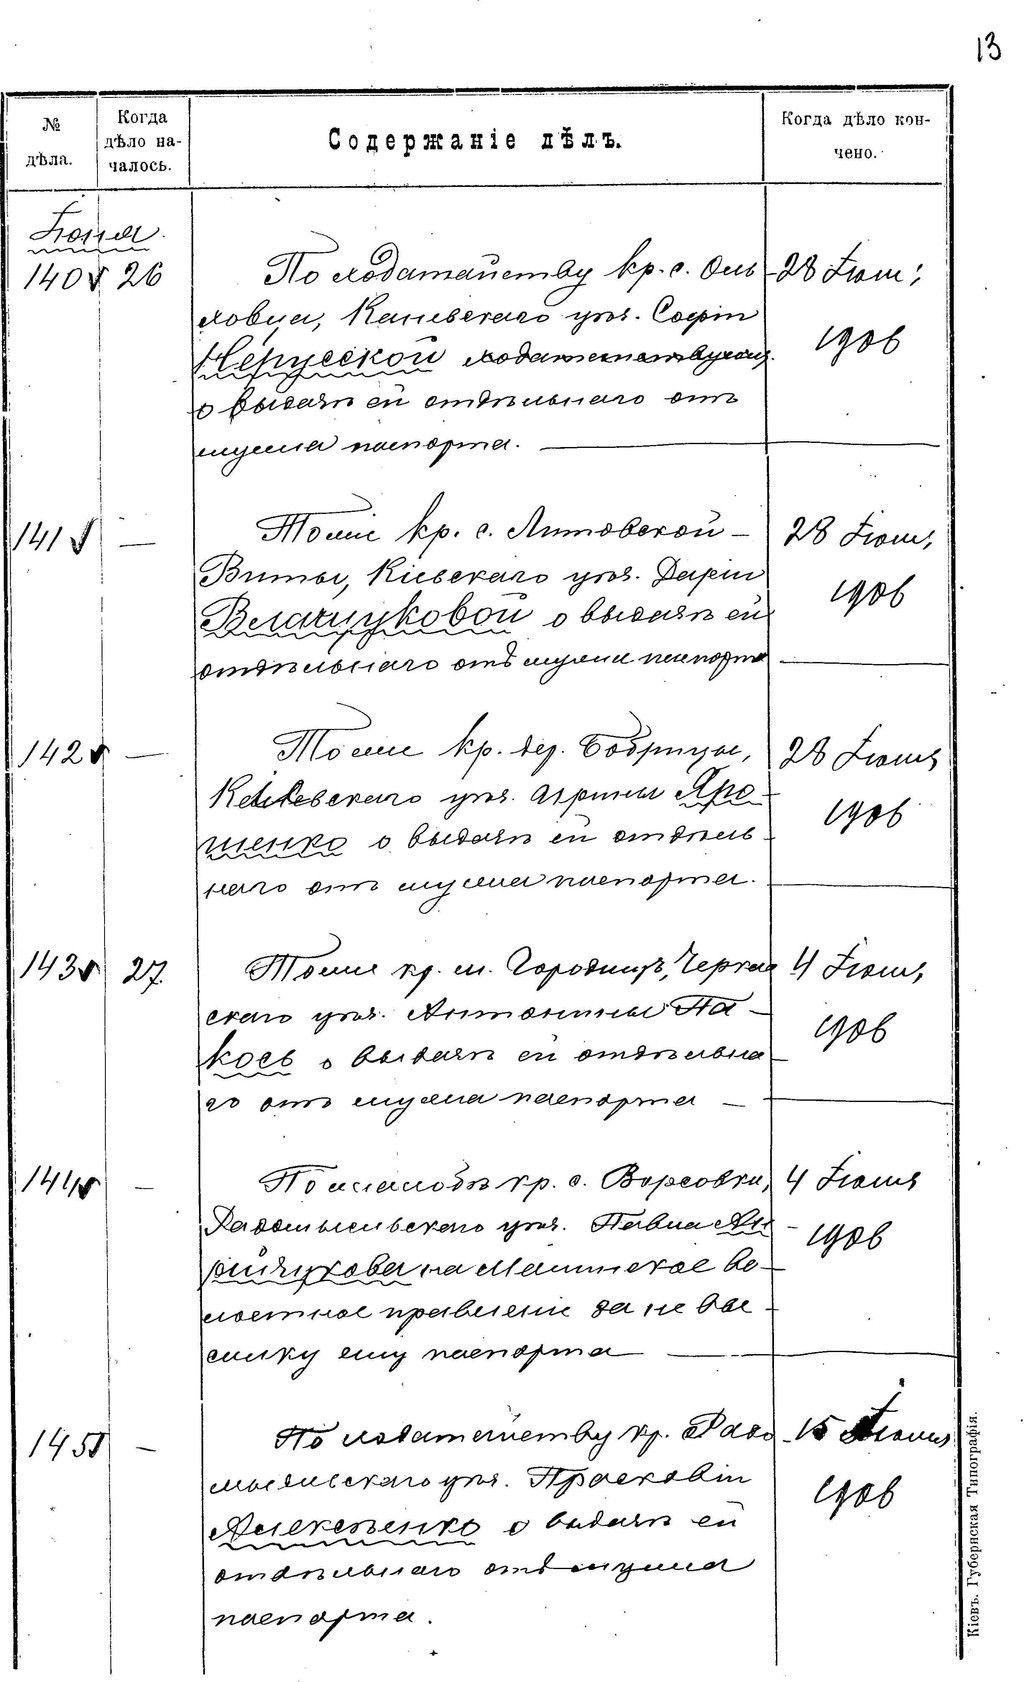 13
№
дѣла.
Когда
дѣло на-
чалось.
Содержаніе дѣлъ.
Когда дѣло кон-
чено.
Іюня
140 26 По ходатайству кр. с. Оль- 28 Іюня
ховца, Каневскаго уѣз. Софіи 1906
Нерусской ходатайствующ.
о выдачѣ ей отдѣльнаго отъ
мужа паспорта.
141 — Тоже кр. с. Литовской 28 Іюня
Виты, Кіевскаго уѣз. Даріи 1906
о выдачѣ ей
отдѣльнаго отъ мужа паспорта
142 — Тоже кр. дер. Бобрицы, 28 Іюня
Каневскаго уѣз. Ирины Яро- 1906
шенко о выдачѣ ей отдѣль-
наго отъ мужа паспорта.
143 27 Тоже кр. м. Городищъ, Черкас 4 Іюля
скаго уѣз. Антонины Па- 1906
кось о выдачѣ ей отдѣльна
го отъ мужа паспорта —
144 — По жалобѣ кр. с. Ворсовки, 4 Іюля
Радомысльскаго уѣз. Павла Ан 1906
на Малинское во-
лостное правленіе за не вы-
сылку ему паспорта
145 — По ходатайству кр. Радо 15 Іюля
мысльскаго уѣз. Прасковіи 1906
Алексѣенко о выдачѣ ей
отдѣльнаго отъ мужа
паспорта.
Кіевъ. Губернская Типографія.